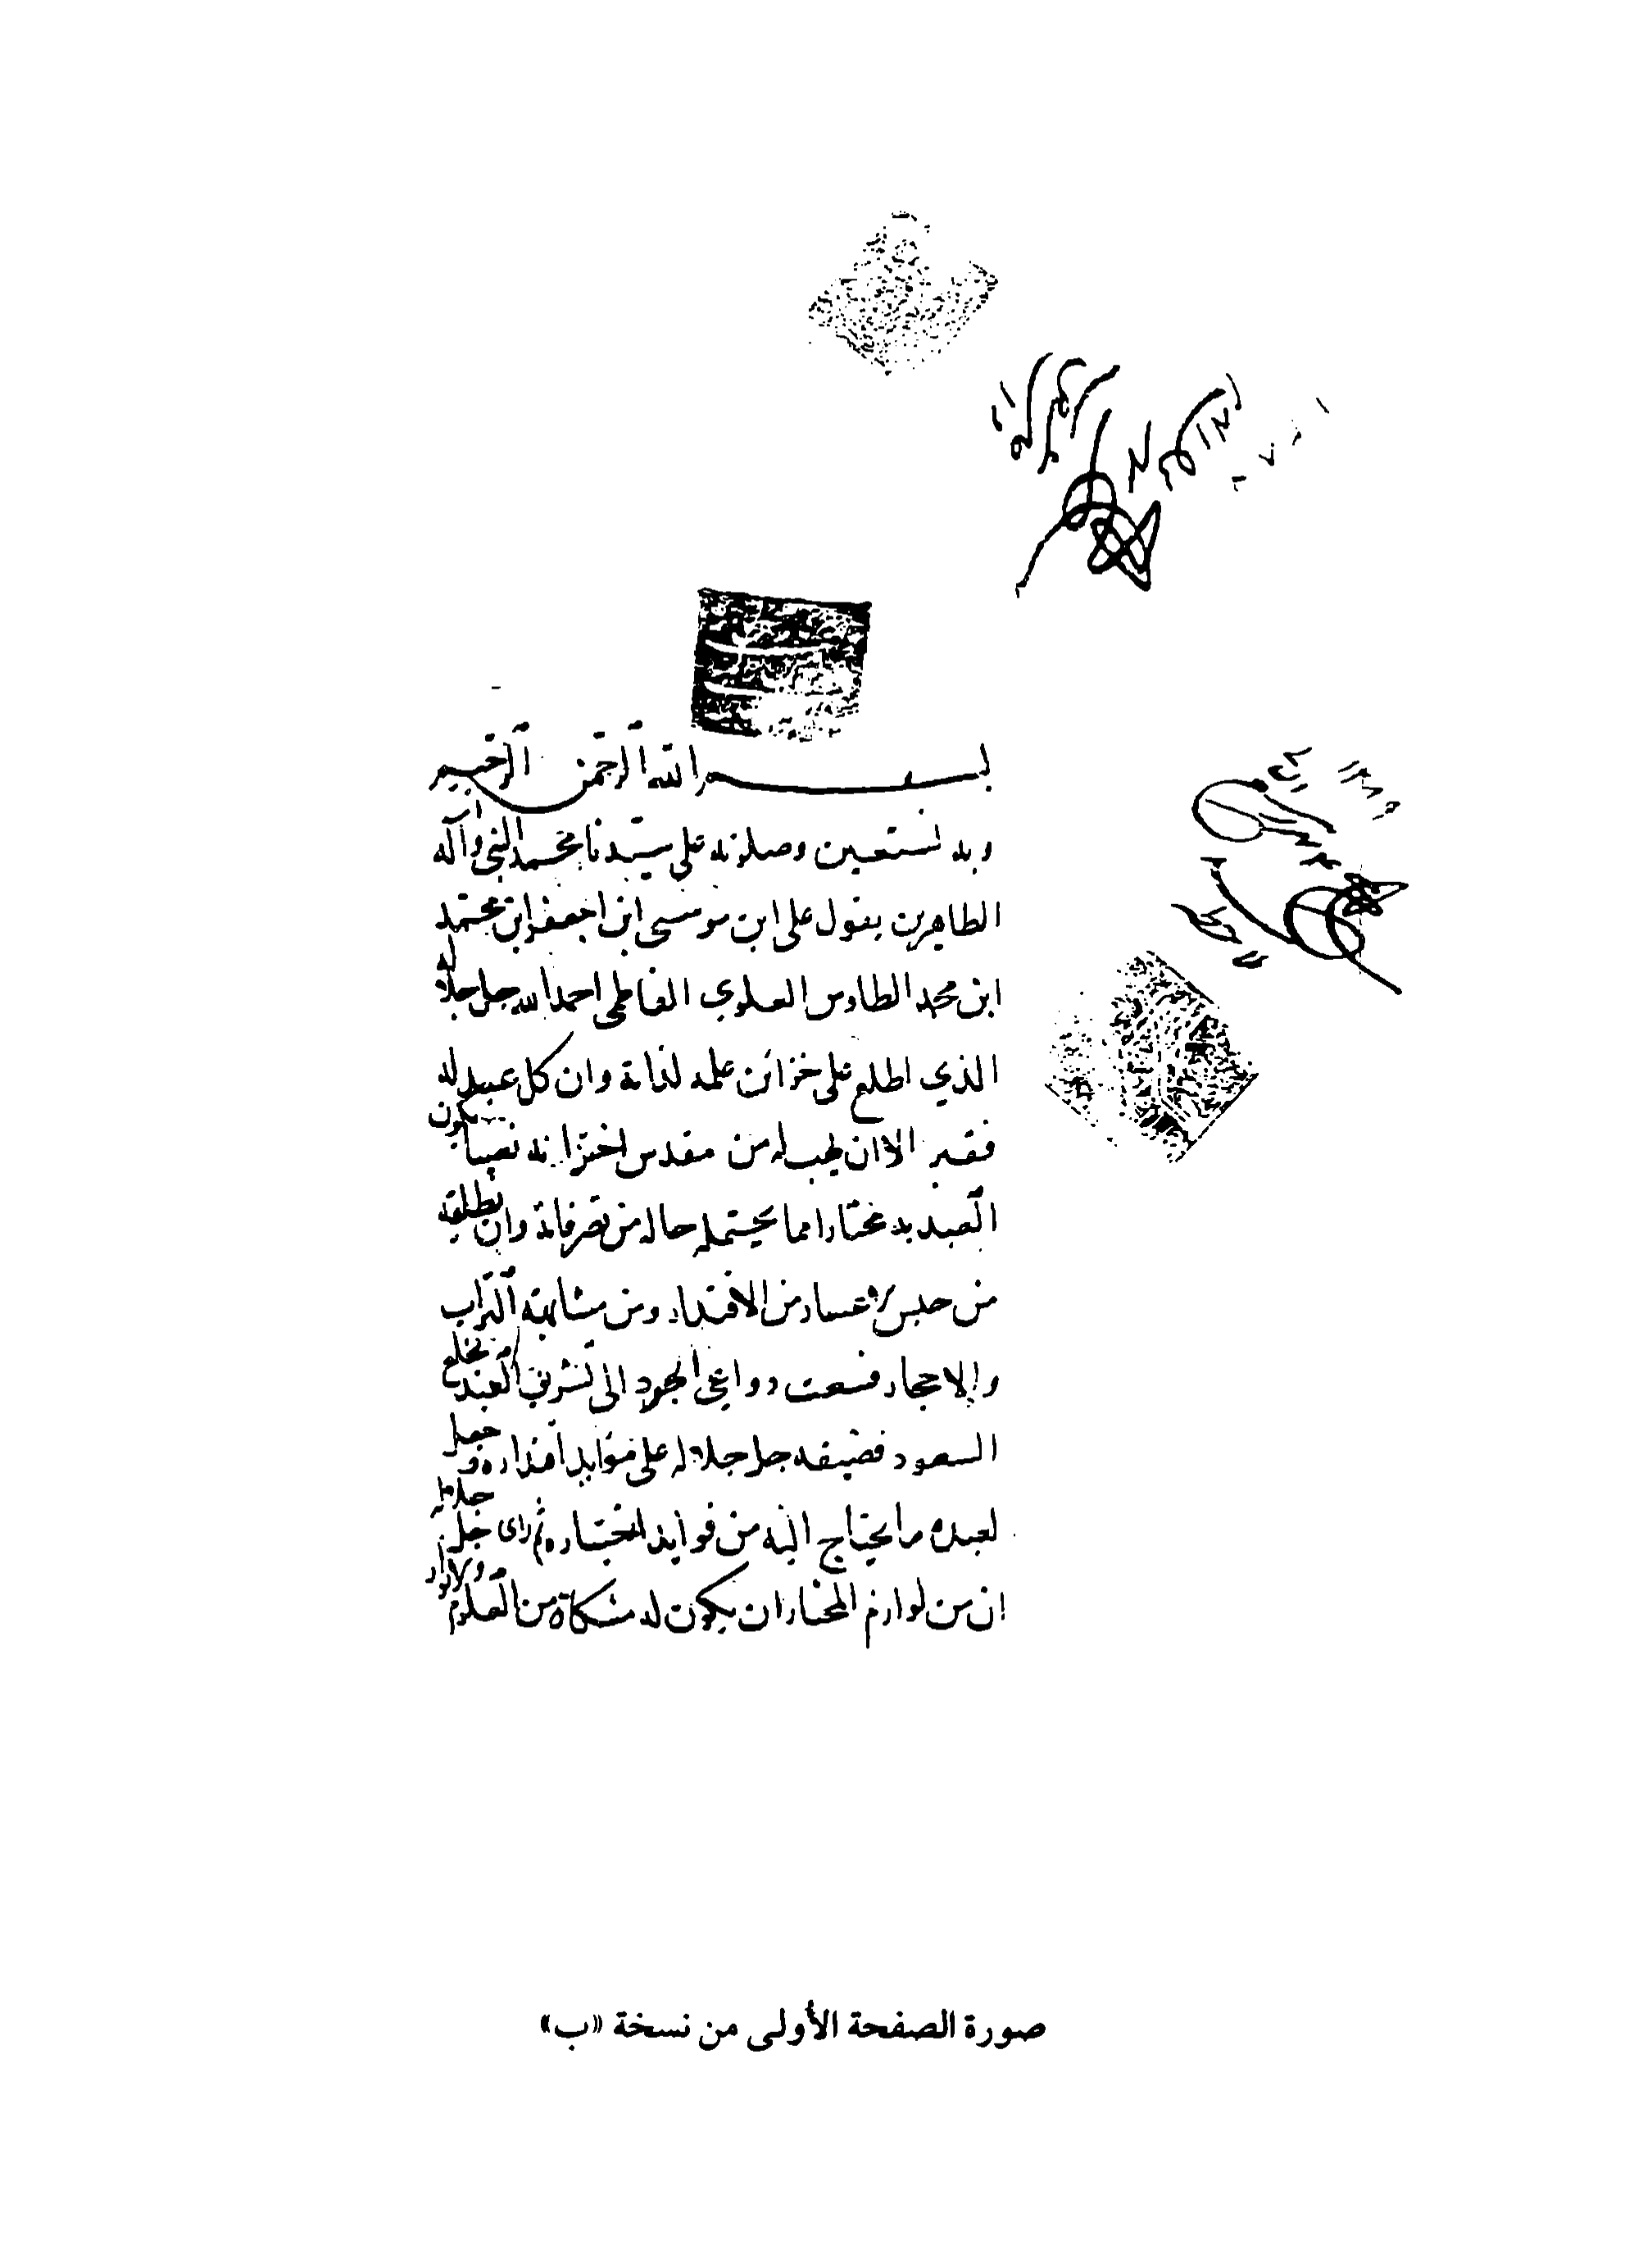 بسم الله الرحمن الرحيم
وبه نستعين وصلوته على سيدنا محمد النبي وآله
الطاهرين يقول على ابن موسى ابن اجعفر ابن محمد
ابن محمد الطاوس العلوي الفاطمى احمد الله جل جلاله
الذي اطلع على خزائن علمه لذاته وان كل عبد له
فقير الا ان يهب له من مقدس اختزانه نصيبا يكون
العبد به مختارا مما يحتمله حاله من تصرفاته وان يطلقه
من حبس الاعسار من الاقتدار ومن مشابهته التراب
والاحجار فسعت دواعى الجود الى تشريف العبد بخلع
السعود فضيفه جل جلاله على موايد اقتداره وجعل
لعبده ما يحتاج اليه من فوايد اختياره ثم راى جل جلاله
ان من لوازم المختار ان يكون له مشكاة من العلوم والانوار
١٣٨٩
صورة الصفحة الأولى من نسخة «ب»